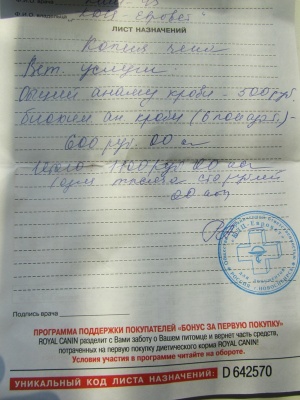 ЛИСТ НАЗНАЧЕНИЙ
Вет. услуги:
Общий анализ крови - 500 руб.
биохим ан крови (6 показат.) -
600 руб. 00 к
Итого - 1100 руб 00 коп
Одна тысяча сто рублей
00 коп
Подпись врача
ПРОГРАММА ПОДДЕРЖКИ ПОКУПАТЕЛЕЙ «БОНУС ЗА ПЕРВУЮ ПОКУПКУ»
ROYAL CANIN разделит с Вами заботу о Вашем питомце и вернет часть средств,
потраченных на первую покупку диетического корма ROYAL CANIN!
Условия участия в программе читайте на обороте.
УНИКАЛЬНЫЙ КОД ЛИСТА НАЗНАЧЕНИЙ: D 642570